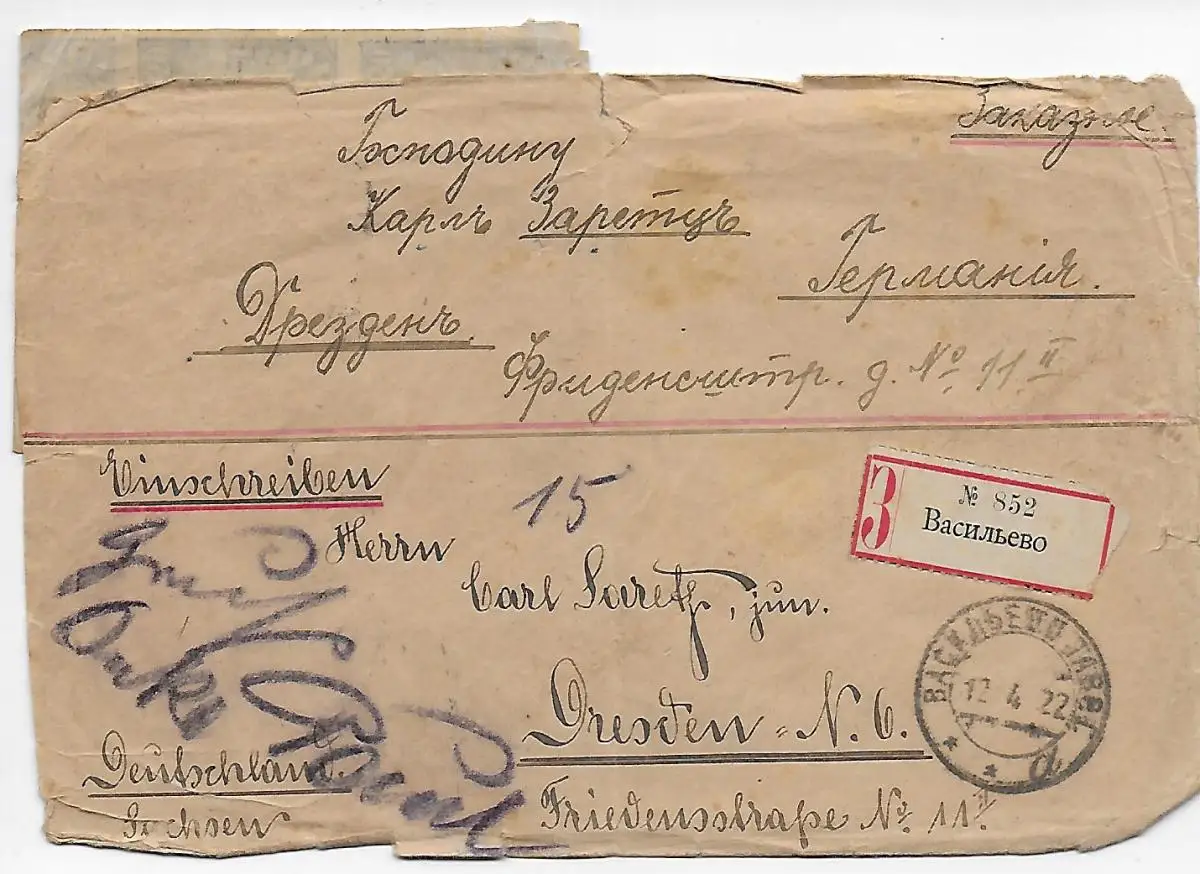 Заказное.
Господину
Карлъ Заретцъ
Германія.
Дрезденъ.
Фриденсштр. д. № 11 II
Einschreiben
15
З
№ 852
Васильево
Herrn
Carl Saretz, jun.
12 4 22
Dresden - N. 6.
Deutschland.
Sachsen
Friedensstraße No. 11 II